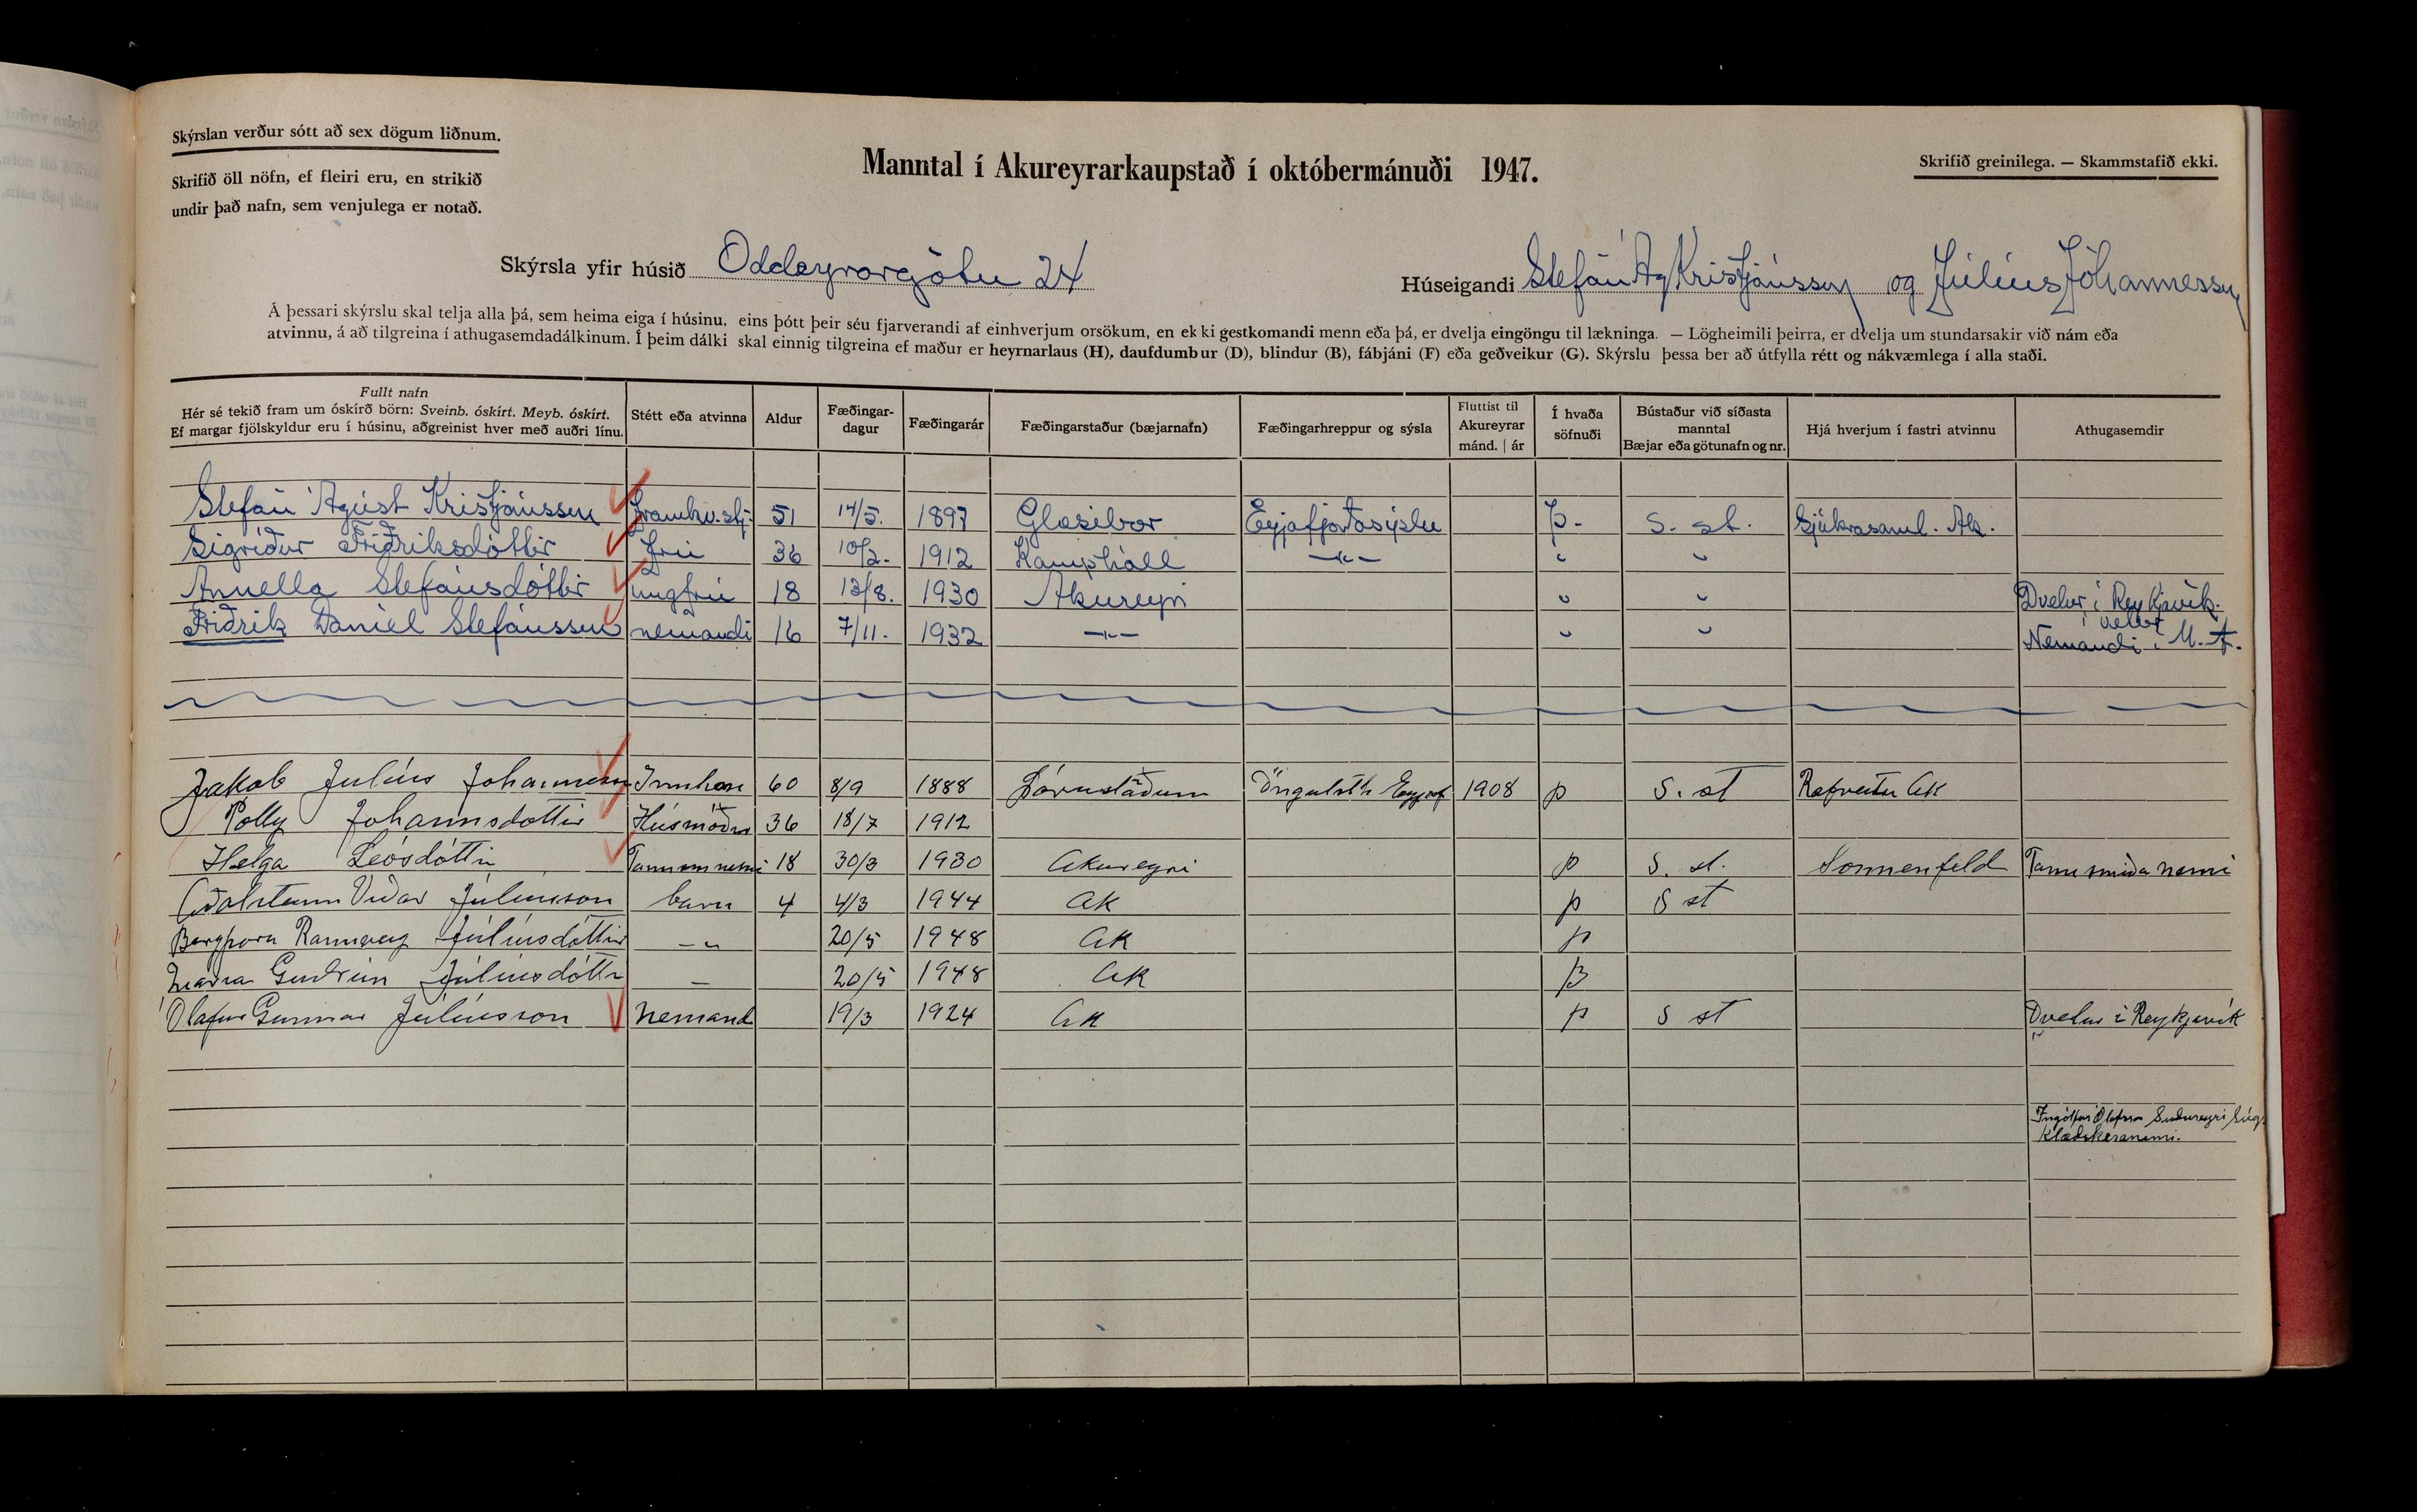 Skýrslan verður sótt að sex dögum liðnum.
Skrifið öll nöfn, ef fleiri eru, en strikið
undir það nafn, sem venjulega er notað.
Manntal í Akureyrarkaupstað í októbermánuði 1947.
Skrifið greinilega. — Skammstafið ekki.
Skýrsla yfir húsið Oddeyrargötu 24
Húseigandi Stefán Ág Kristjánsson og Júlíus Jóhannesson
Á þessari skýrslu skal telja alla þá, sem heima eiga í húsinu, eins þótt þeir séu fjarverandi af einhverjum orsökum, en ekki gestkomandi menn eða þá, er dvelja eingöngu til lækninga. — Lögheimili þeirra, er dvelja um stundarsakir við nám eða
atvinnu, á að tilgreina í athugasemdadálkinum. Í þeim dálki skal einnig tilgreina ef maður er heyrnarlaus (H), daufdumbur (D), blindur (B), fábjáni (F) eða geðveikur (G). Skýrslu þessa ber að útfylla rétt og nákvæmlega í alla staði.
Fullt nafn
Hér sé tekið fram um óskírð börn: Sveinb. óskírt. Meyb. óskírt.
Ef margar fjölskyldur eru í húsinu, aðgreinist hver með auðri línu.
Stétt eða atvinna
Aldur
Fæðingar-
dagur
Fæðingarár
Fæðingarstaður (bæjarnafn)
Fæðingarhreppur og sýsla
Fluttist til
Akureyrar
mánd. | ár
Í hvaða
söfnuði
Bústaður við síðasta
manntal
Bæjar eða götunafn og nr.
Hjá hverjum í fastri atvinnu
Athugasemdir
Stefán Ágúst Kristjánsson Framkv.stj. 51 14/5. 1897 Glæsibær Eyjafjarðasýslu Þ- S. st. Sjúkrasaml. Ak.
Sigríður Friðriksdóttir frú 36 10/2- 1912 Kamphóll —"— " "
Annella Stefánsdóttir ungfrú 18 13/8. 1930 Akureyri " " Dvelur í Reykjavík í vetur
Friðrik Daníel Stefánsson nemandi 16 7/11. 1932 —"— " " Nemandi í M. A.
Jakob Júlíus Johannesson 60 8/9 1888 Öngulsth Eyjaf 1908 þ S. st Rafveitu Ak
Polly Johannsdottir Húsmóðir 36 18/7 1912
Helga Leósdóttir 18 30/3 1930 Akureyri þ S. st. Sonnenfeld Tannsmiða nemi
Aðalsteinn Viðar Júlíusson barn 4 4/3 1944 Ak þ S st
Bergþora Rannveig Júlíusdóttir —"— 20/5 1948 Ak þ
María Guðrún Júlíusdóttir — 20/5 1948 Ak þ
Ólafur Gunnar Júlíusson Nemand 19/3 1924 Ak þ S st Dvelur í Reykjavík
Ingólfur Ólafsson Suðureyri Súg
Klæðskeranemi.